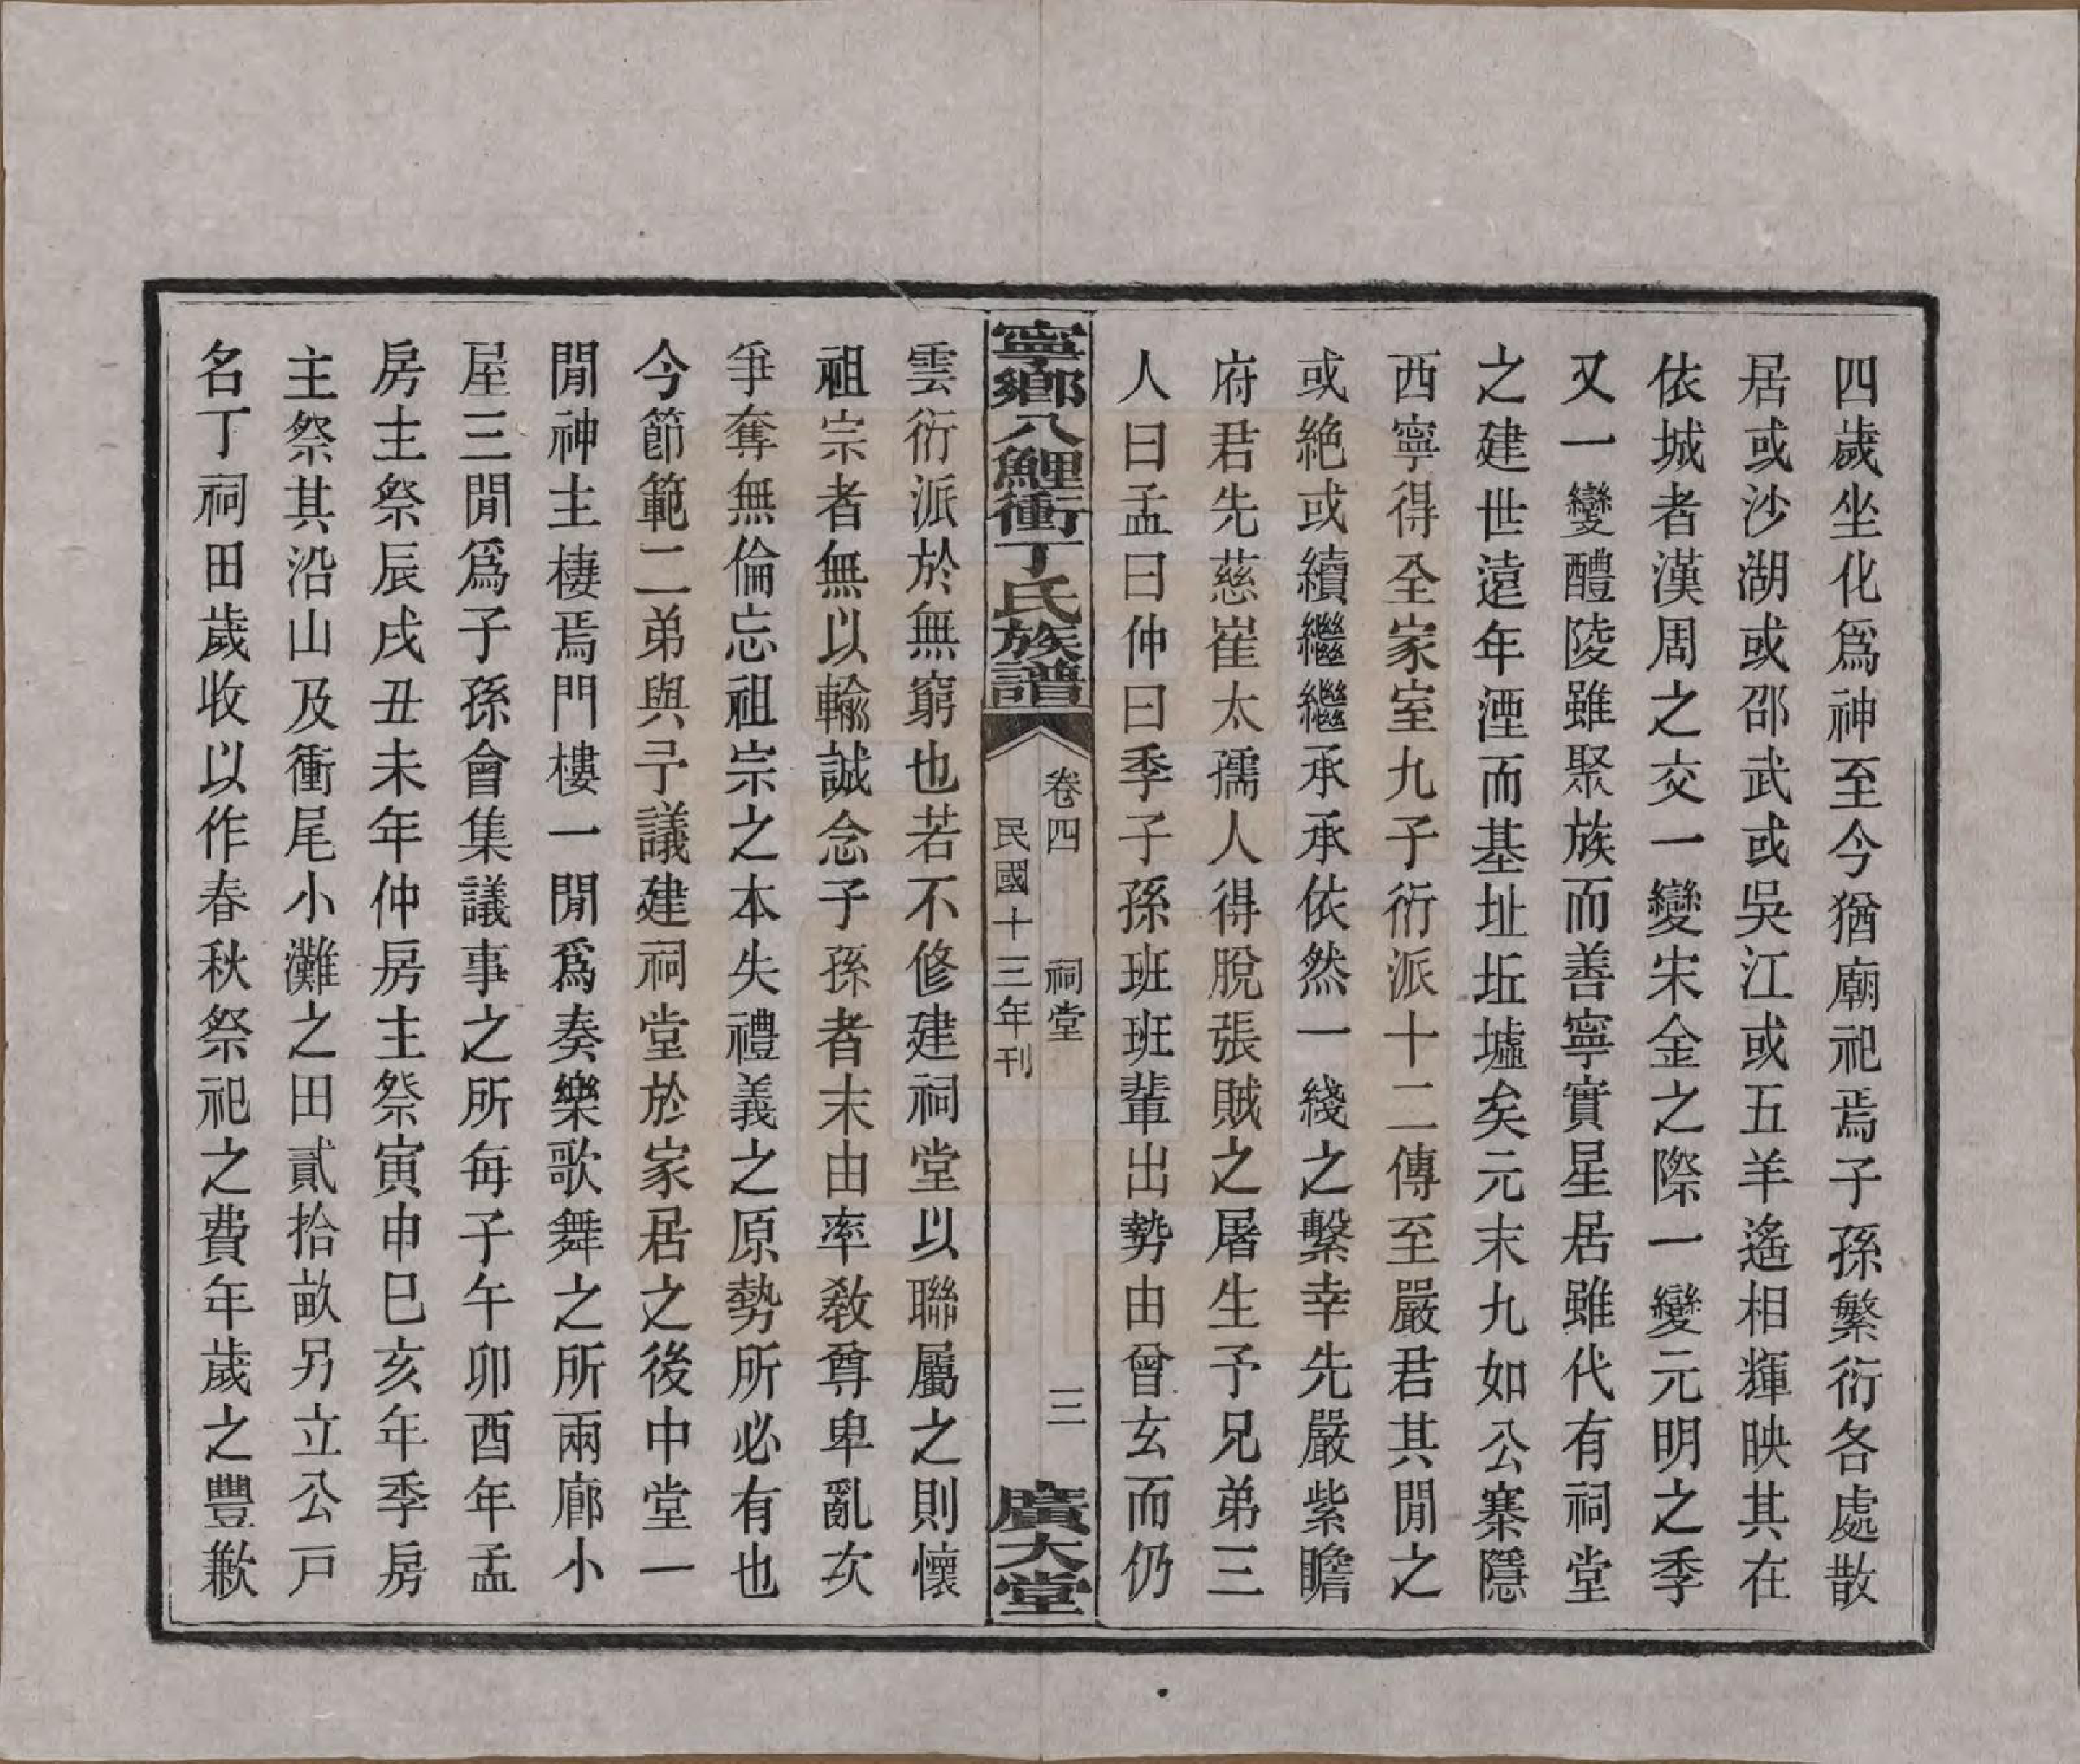 四歲坐化爲神至今猶廟祀焉子孫繁衍各處散
居或沙湖或邵武或吳江或五羊遙相輝映其在
依城者漢周之交一變宋金之際一變元明之季
又一變醴陵雖聚族而善寧實星居雖代有祠堂
之建世遠年湮而基址坵墟矣元末九如公寨隱
西寧得全家室九子衍派十二傳至嚴君其閒之
或絶或續繼繼承承依然一綫之繫幸先嚴紫瞻
府君先慈崔太孺人得脫張賊之屠生予兄弟三
人曰孟曰仲曰季子孫班班輩出勢由曾玄而仍
寧鄉八鯉衝丁氏族譜
卷四 祠堂 三
民國十三年刊
廣大堂
雲衍派於無窮也若不修建祠堂以聯屬之則懷
祖宗者無以輸誠念子孫者末由率教尊卑亂次
爭奪無倫忘祖宗之本失禮義之原勢所必有也
今節範二弟與予議建祠堂於家居之後中堂一
閒神主棲焉門樓一閒爲奏樂歌舞之所兩廊小
屋三閒爲子孫會集議事之所每子午卯酉年孟
房主祭辰戌丑未年仲房主祭寅申巳亥年季房
主祭其沿山及衝尾小灘之田貳拾畝另立公戸
名丁祠田歲收以作春秋祭祀之費年歲之豐歉